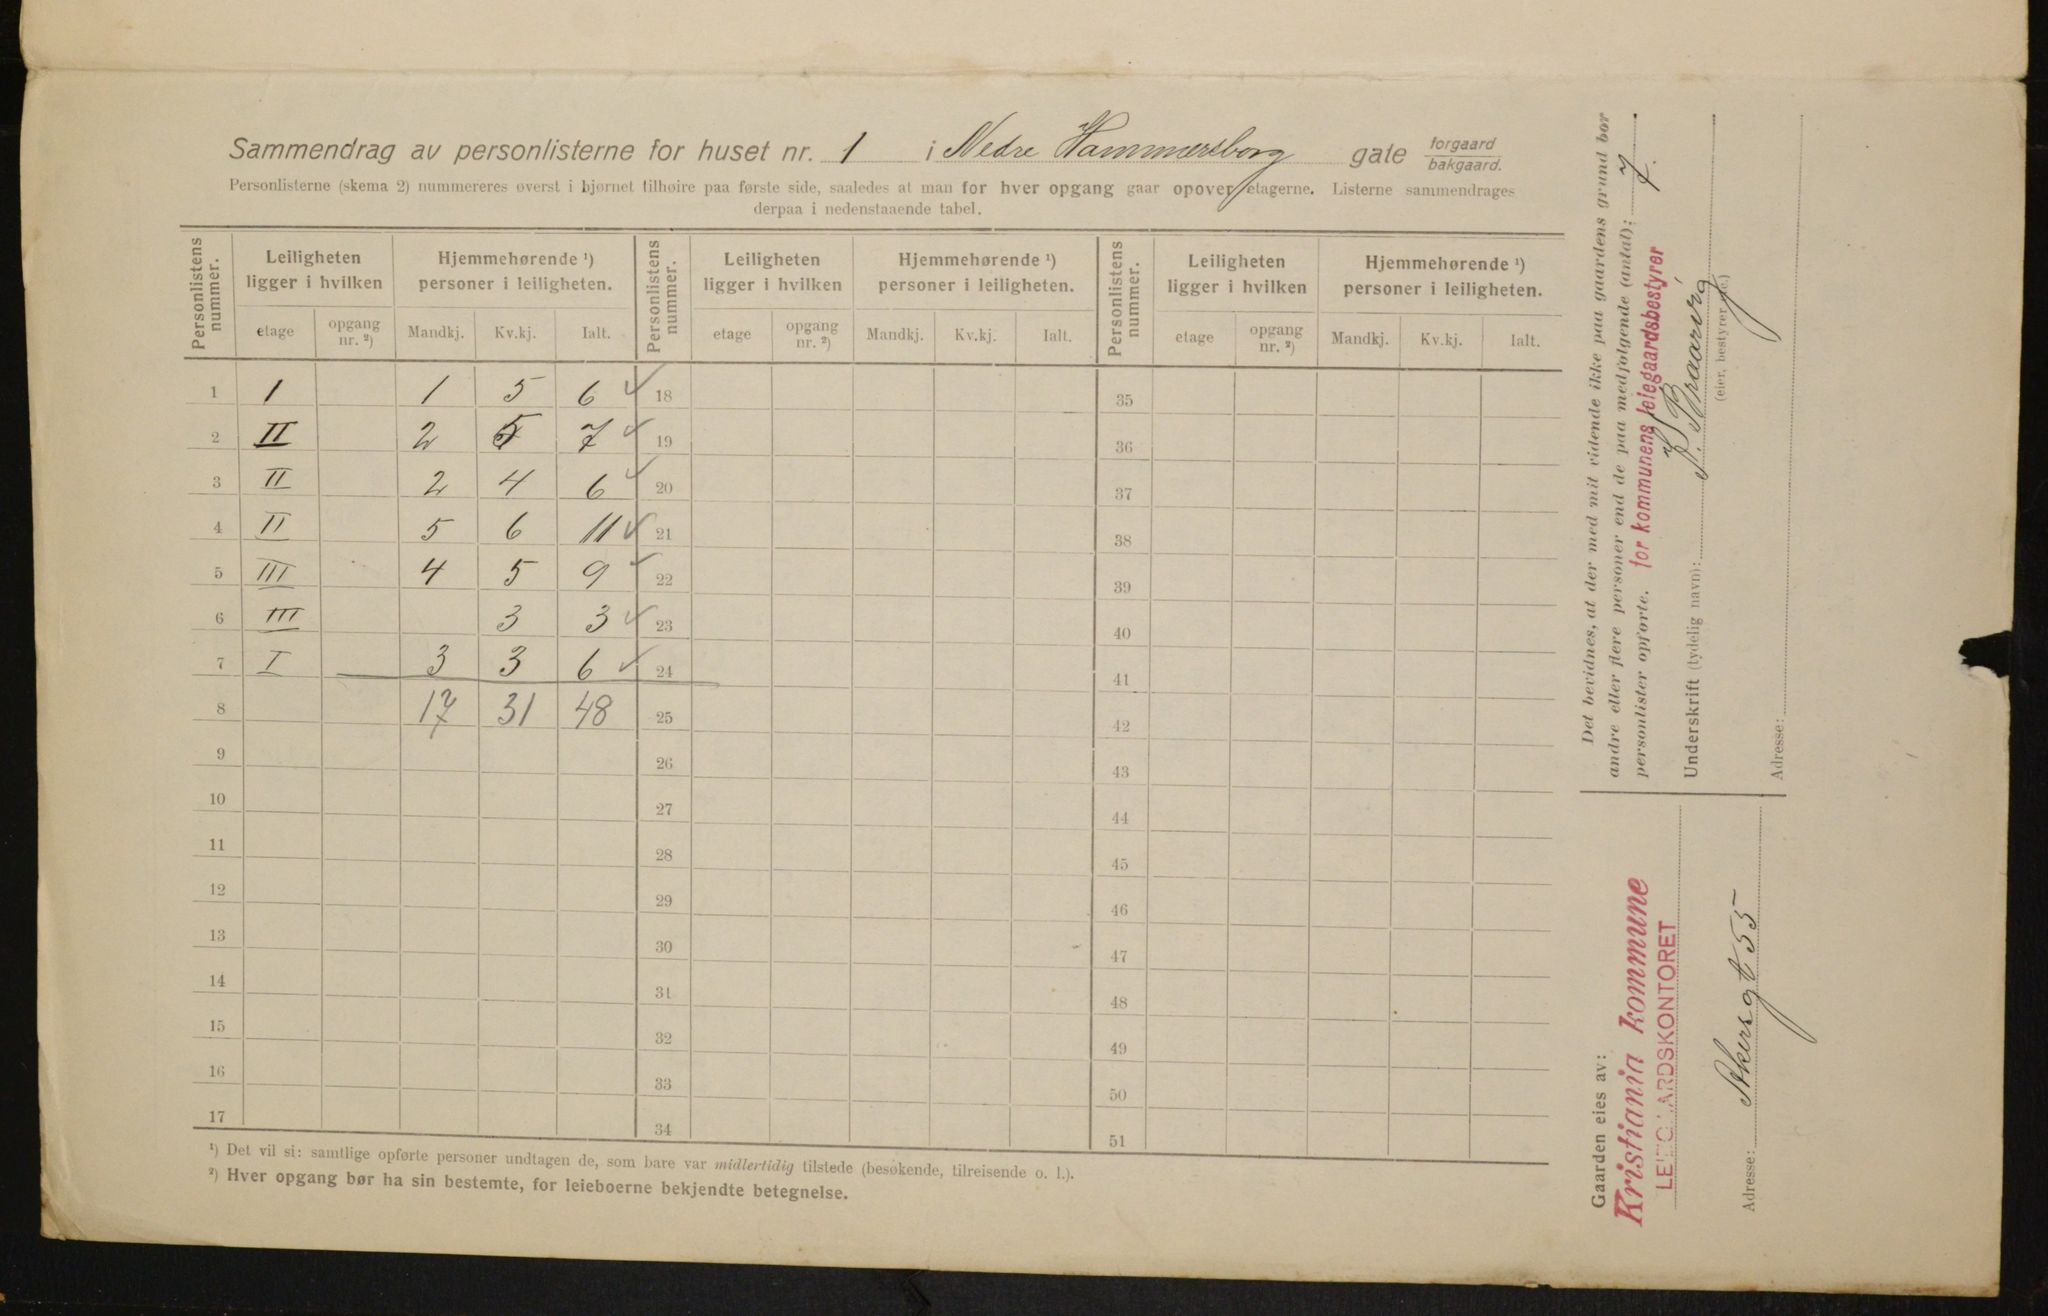 Sammendrag av personlisterne for huset nr. 1 i Nedre Hammersborg gate forgaard bakgaard.
Personlisterne (skema 2) nummereres øverst i hjørnet tilhøire paa første side, saaledes at man for hver opgang gaar opover etagerne. Listerne sammendrages
derpaa i nedenstaaende tabel.
Personlistens nummer. Leiligheten ligger i hvilken Hjemmehørende ¹) personer i leiligheten. Personlistens nummer. Leiligheten ligger i hvilken Hjemmehørende ¹) personer i leiligheten. Personlistens nummer. Leiligheten ligger i hvilken Hjemmehørende ¹) personer i leiligheten.
etage opgang nr. ²) Mandkj. Kv.kj. Ialt. etage opgang nr. ²) Mandkj. Kv.kj. Ialt. etage opgang nr. ²) Mandkj. Kv.kj. Ialt.
1 I 1 5 6 ✓ 18 35
2 II 2 5 7 ✓ 19 36
3 II 2 4 6 ✓ 20 37
4 II 5 6 11 ✓ 21 38
5 III 4 5 9 ✓ 22 39
6 III 3 3 ✓ 23 40
7 I 3 3 6 ✓ 24 41
8 17 31 48 25 42
9 26 43
10 27 44
11 28 45
12 29 46
13 30 47
14 31 48
15 32 49
16 33 50
17 34 51
¹) Det vil si: samtlige opførte personer undtagen de, som bare var midlertidig tilstede (besøkende, tilreisende o. l.).
²) Hver opgang bør ha sin bestemte, for leieboerne bekjendte betegnelse.
Det bevidnes, at der med mit vidende ikke paa gaardens grund bor
andre eller flere personer end de paa medfølgende (antal): 7.
personlister opførte.
for kommunens leiegaardsbestyrer
Underskrift (tydelig navn):
(eier, bestyrer e.)
Adresse:
Gaarden eies av:
Kristiania kommune
LEIEGAARDSKONTORET
Adresse: Akersgt 55